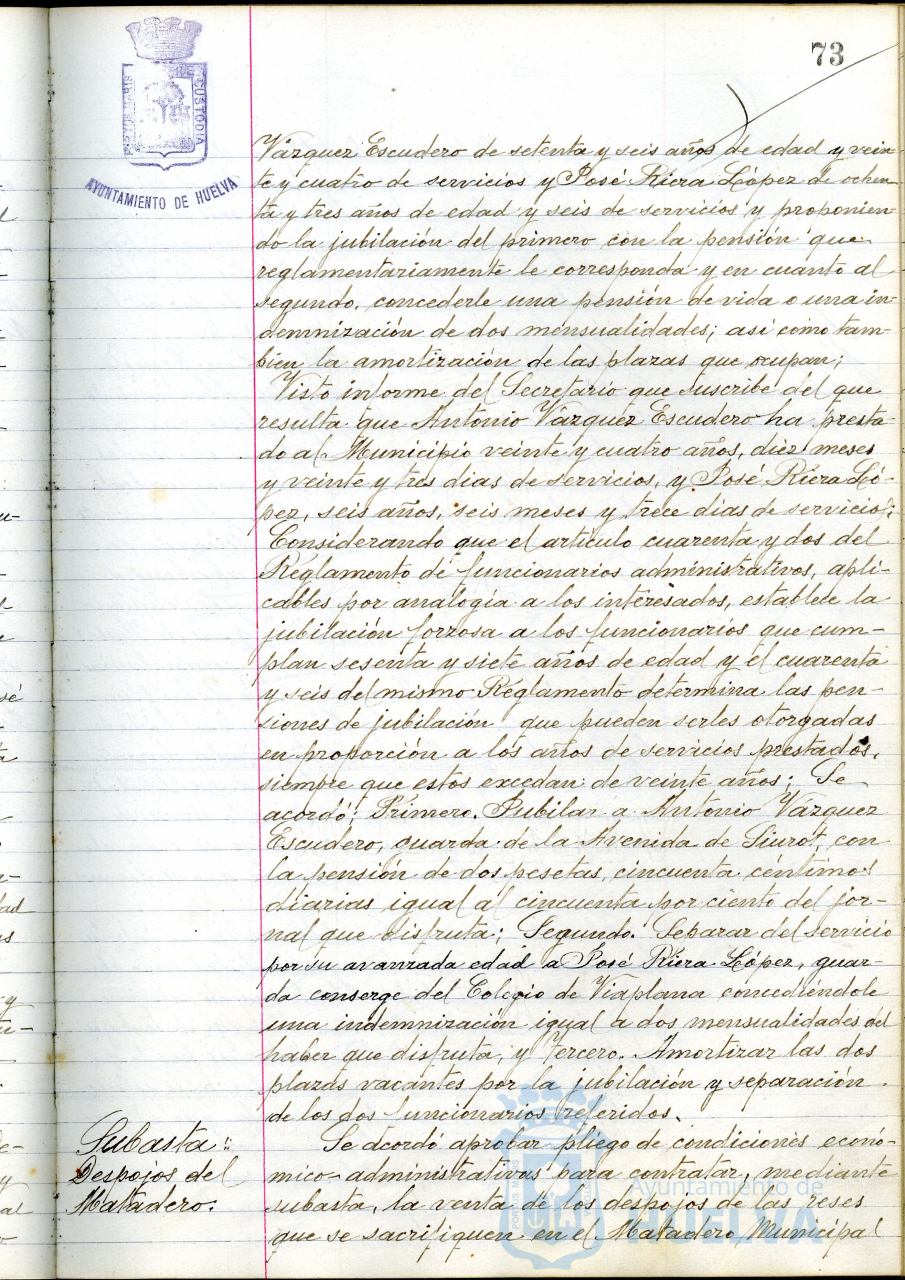 73
PORTUS MARIS
CUSTODIA
AYUNTAMIENTO DE HUELVA
Vázquez Escudero de setenta y seis años de edad y vein-
te y cuatro de servicios y José Riera López de ochen-
ta y tres años de edad y seis de servicios y proponien-
do la jubilación del primero con la pensión que
reglamentariamente le corresponda y en cuanto al
segundo, concederle una pensión de vida o una in-
demnización de dos mensualidades; así como tam-
bien la amortización de las plazas que ocupan;
Visto informe del Secretario que suscribe del que
resulta que Antonio Vázquez Escudero ha presta-
do al Municipio veinte y cuatro años, diez meses
y veinte y tres dias de servicios, y José Riera Ló-
pez, seis años, seis meses y trece días de servicios;
Considerando que el artículo cuarenta y dos del
Reglamento de funcionarios administrativos, apli-
cables por analogía a los interesados, establece la
jubilación forzosa a los funcionarios que cum-
plan sesenta y siete años de edad y el cuarenta
y seis del mismo Reglamento determina las pen-
siones de jubilación que pueden serles otorgadas
en proporción a los años de servicios prestados,
siempre que estos excedan de veinte años; Se
acordó: Primero. Jubilar a Antonio Vázquez
Escudero, guarda de la Avenida de Siurot, con
la pensión de dos pesetas, cincuenta céntimos
diarias igual al cincuenta por ciento del jor-
nal que disfruta; Segundo. Separar del servicio
por su avanzada edad a José Riera López, guar-
da conserge del Colegio de Viaplana concediéndole
una indemnización igual a dos mensualidades del
haber que disfruta, y Tercero. Amortizar las dos
plazas vacantes por la jubilación y separación
de los dos funcionarios referidos.
Subasta:
Despojos del
Matadero.
Se acordó aprobar pliego de condiciones econó-
mico-administrativas para contratar, mediante
subasta, la venta de los despojos de las reses
que se sacrifiquen en el Matadero Municipal
Ayuntamiento de
HUELVA